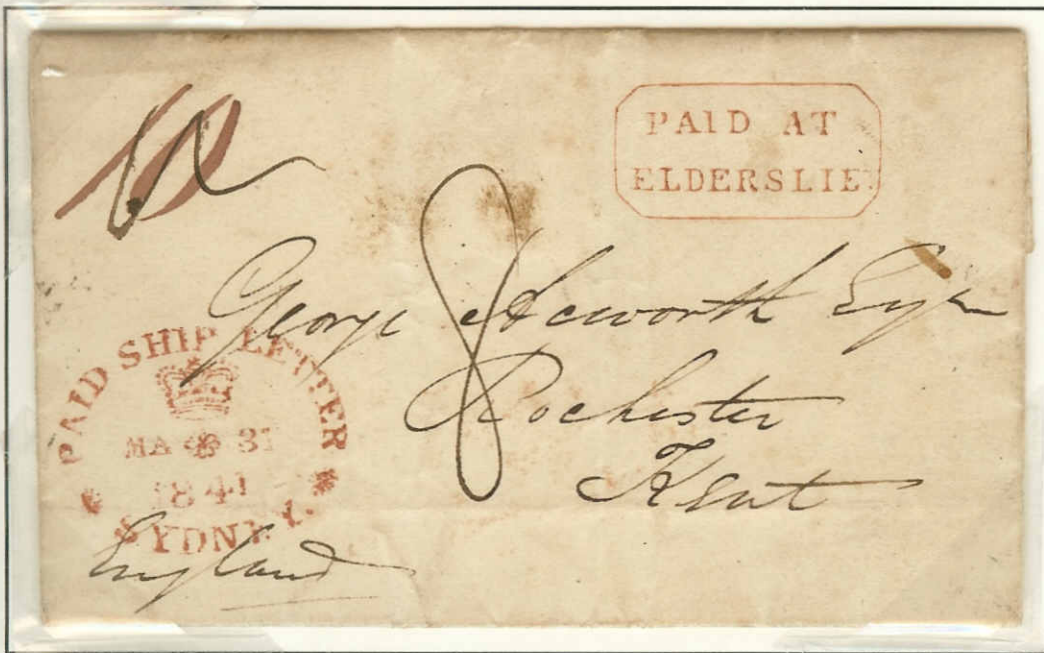 10
PAID AT
ELDERSLIE
8
George Acworth Esqr
Rochester
Kent
PAID SHIP LETTER
MA 31
1841
SYDNEY
England